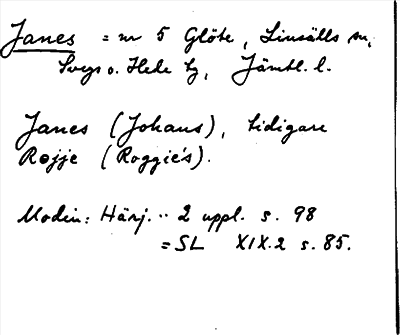 Janes = nr 5 Glöte, Linsälls sn,
Svegs o. Hede tg, Jämtl. l.
Janes (Johans), tidigare
Rojje (Roggiés).
Modin: Härj. ·· 2 uppl. s. 98
= SL XIX.2 s. 85.